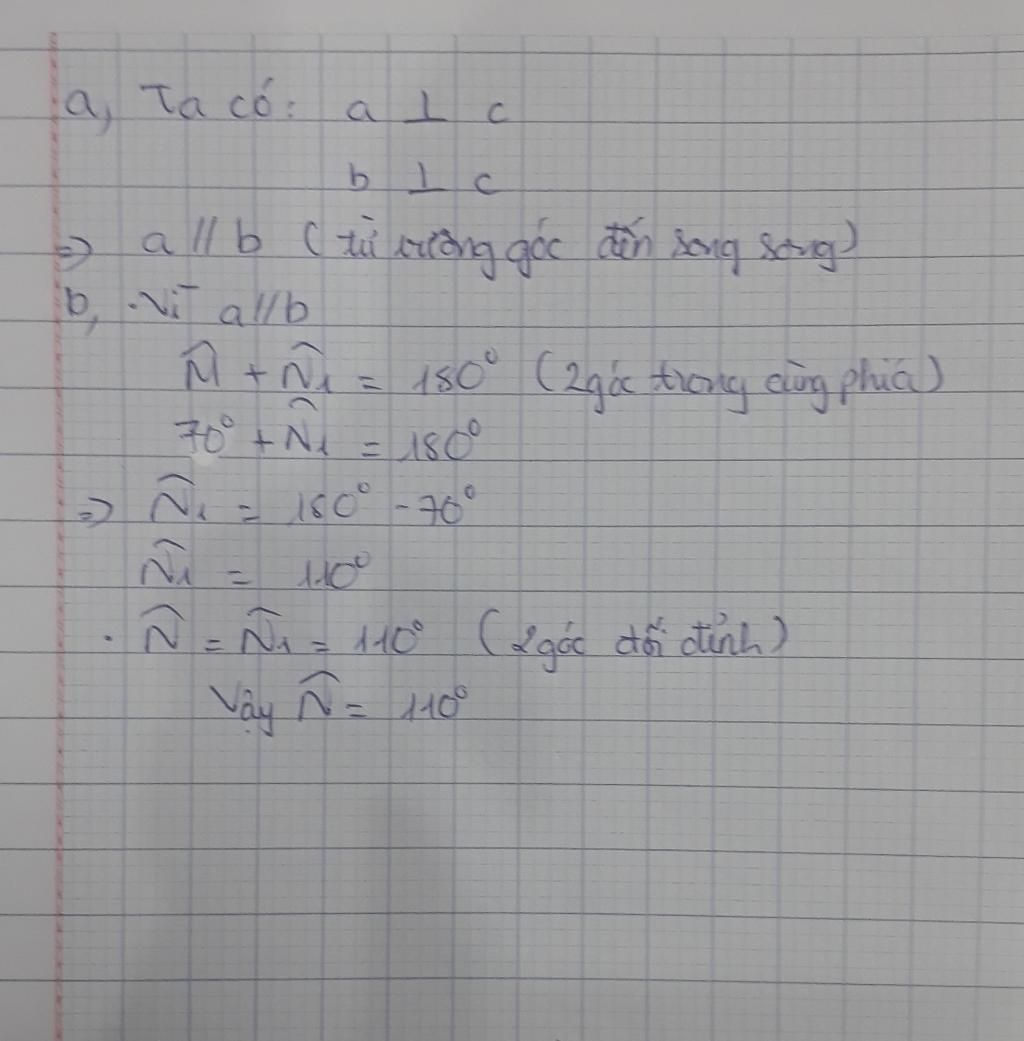 a, Ta có: a ⊥ c
b ⊥ c
=> a // b (từ vuông góc đến song song)
b, . Vì a // b
M̂ + N̂₁ = 180° (2 góc trong cùng phía)
70° + N̂₁ = 180°
=> N̂₁ = 180° - 70°
N̂₁ = 110°
. N̂ = N̂₁ = 110° (2 góc đối đỉnh)
Vậy N̂ = 110°